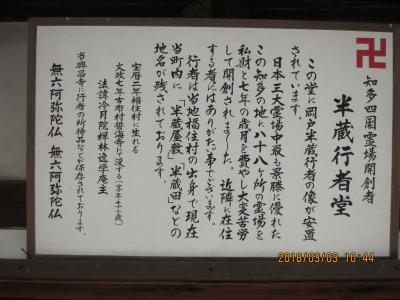 卍
知多四国霊場開創者
半蔵行者堂
この堂に岡戸半蔵行者の像が安置
されています。
日本三大霊場中最も景勝に優れた
この知多の地に八十八ヶ所の霊場を
私財と七年の歳月を費やし大変苦労
して開創されました。近隣に在住
する者にはありがたい事でございます。
行者は当地福住村の出身で現在
当町内に「半蔵屋敷」半蔵田などの
地名が残されております。
宝暦二年福住村に生れる
文政七年古布村誓海寺に没する
法諱冷月院禅林逸学庵主
当興昌寺に行者の所持品などが保存されております。
無六阿弥陀仏 無六阿弥陀仏
2018/03/03 10:44